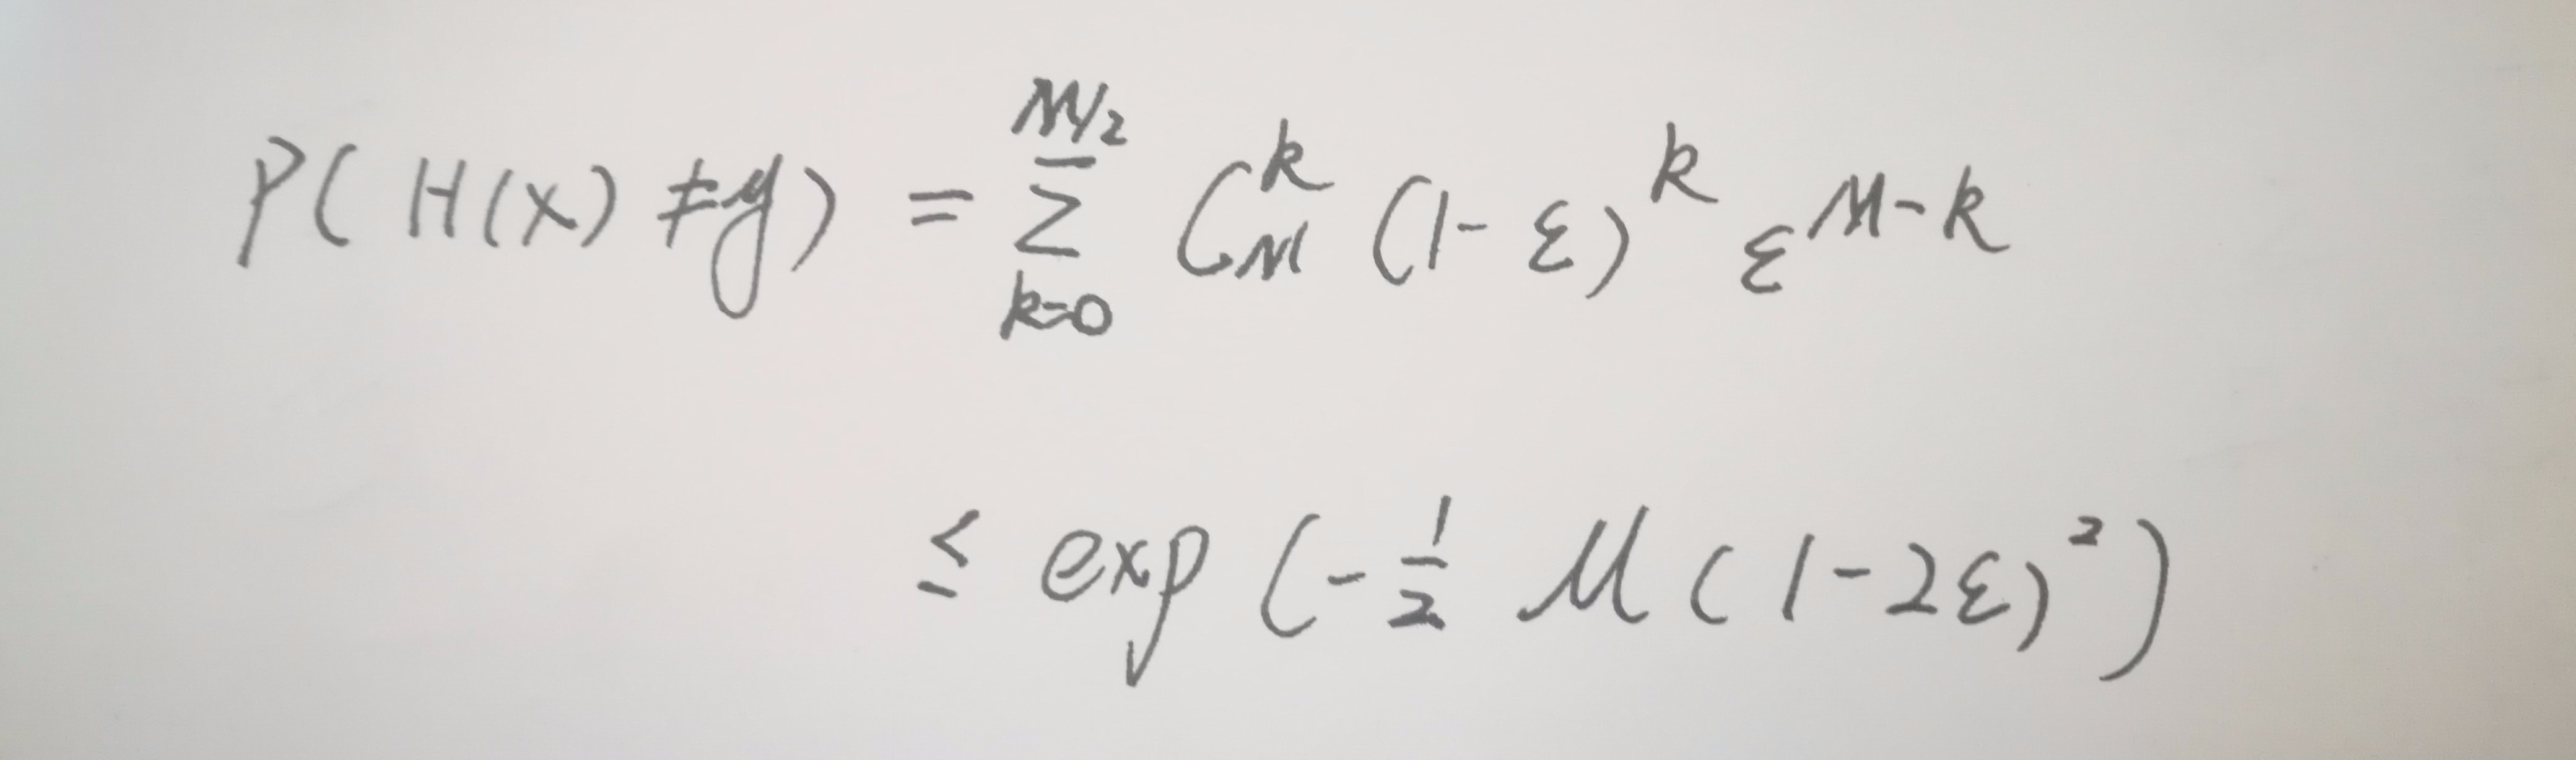 P(H(x)≠y) = \sum_{k=0}^{M/2} C_M^k (1-ε)^k ε^{M-k}
≤ exp(-\frac{1}{2} M(1-2ε)^2)